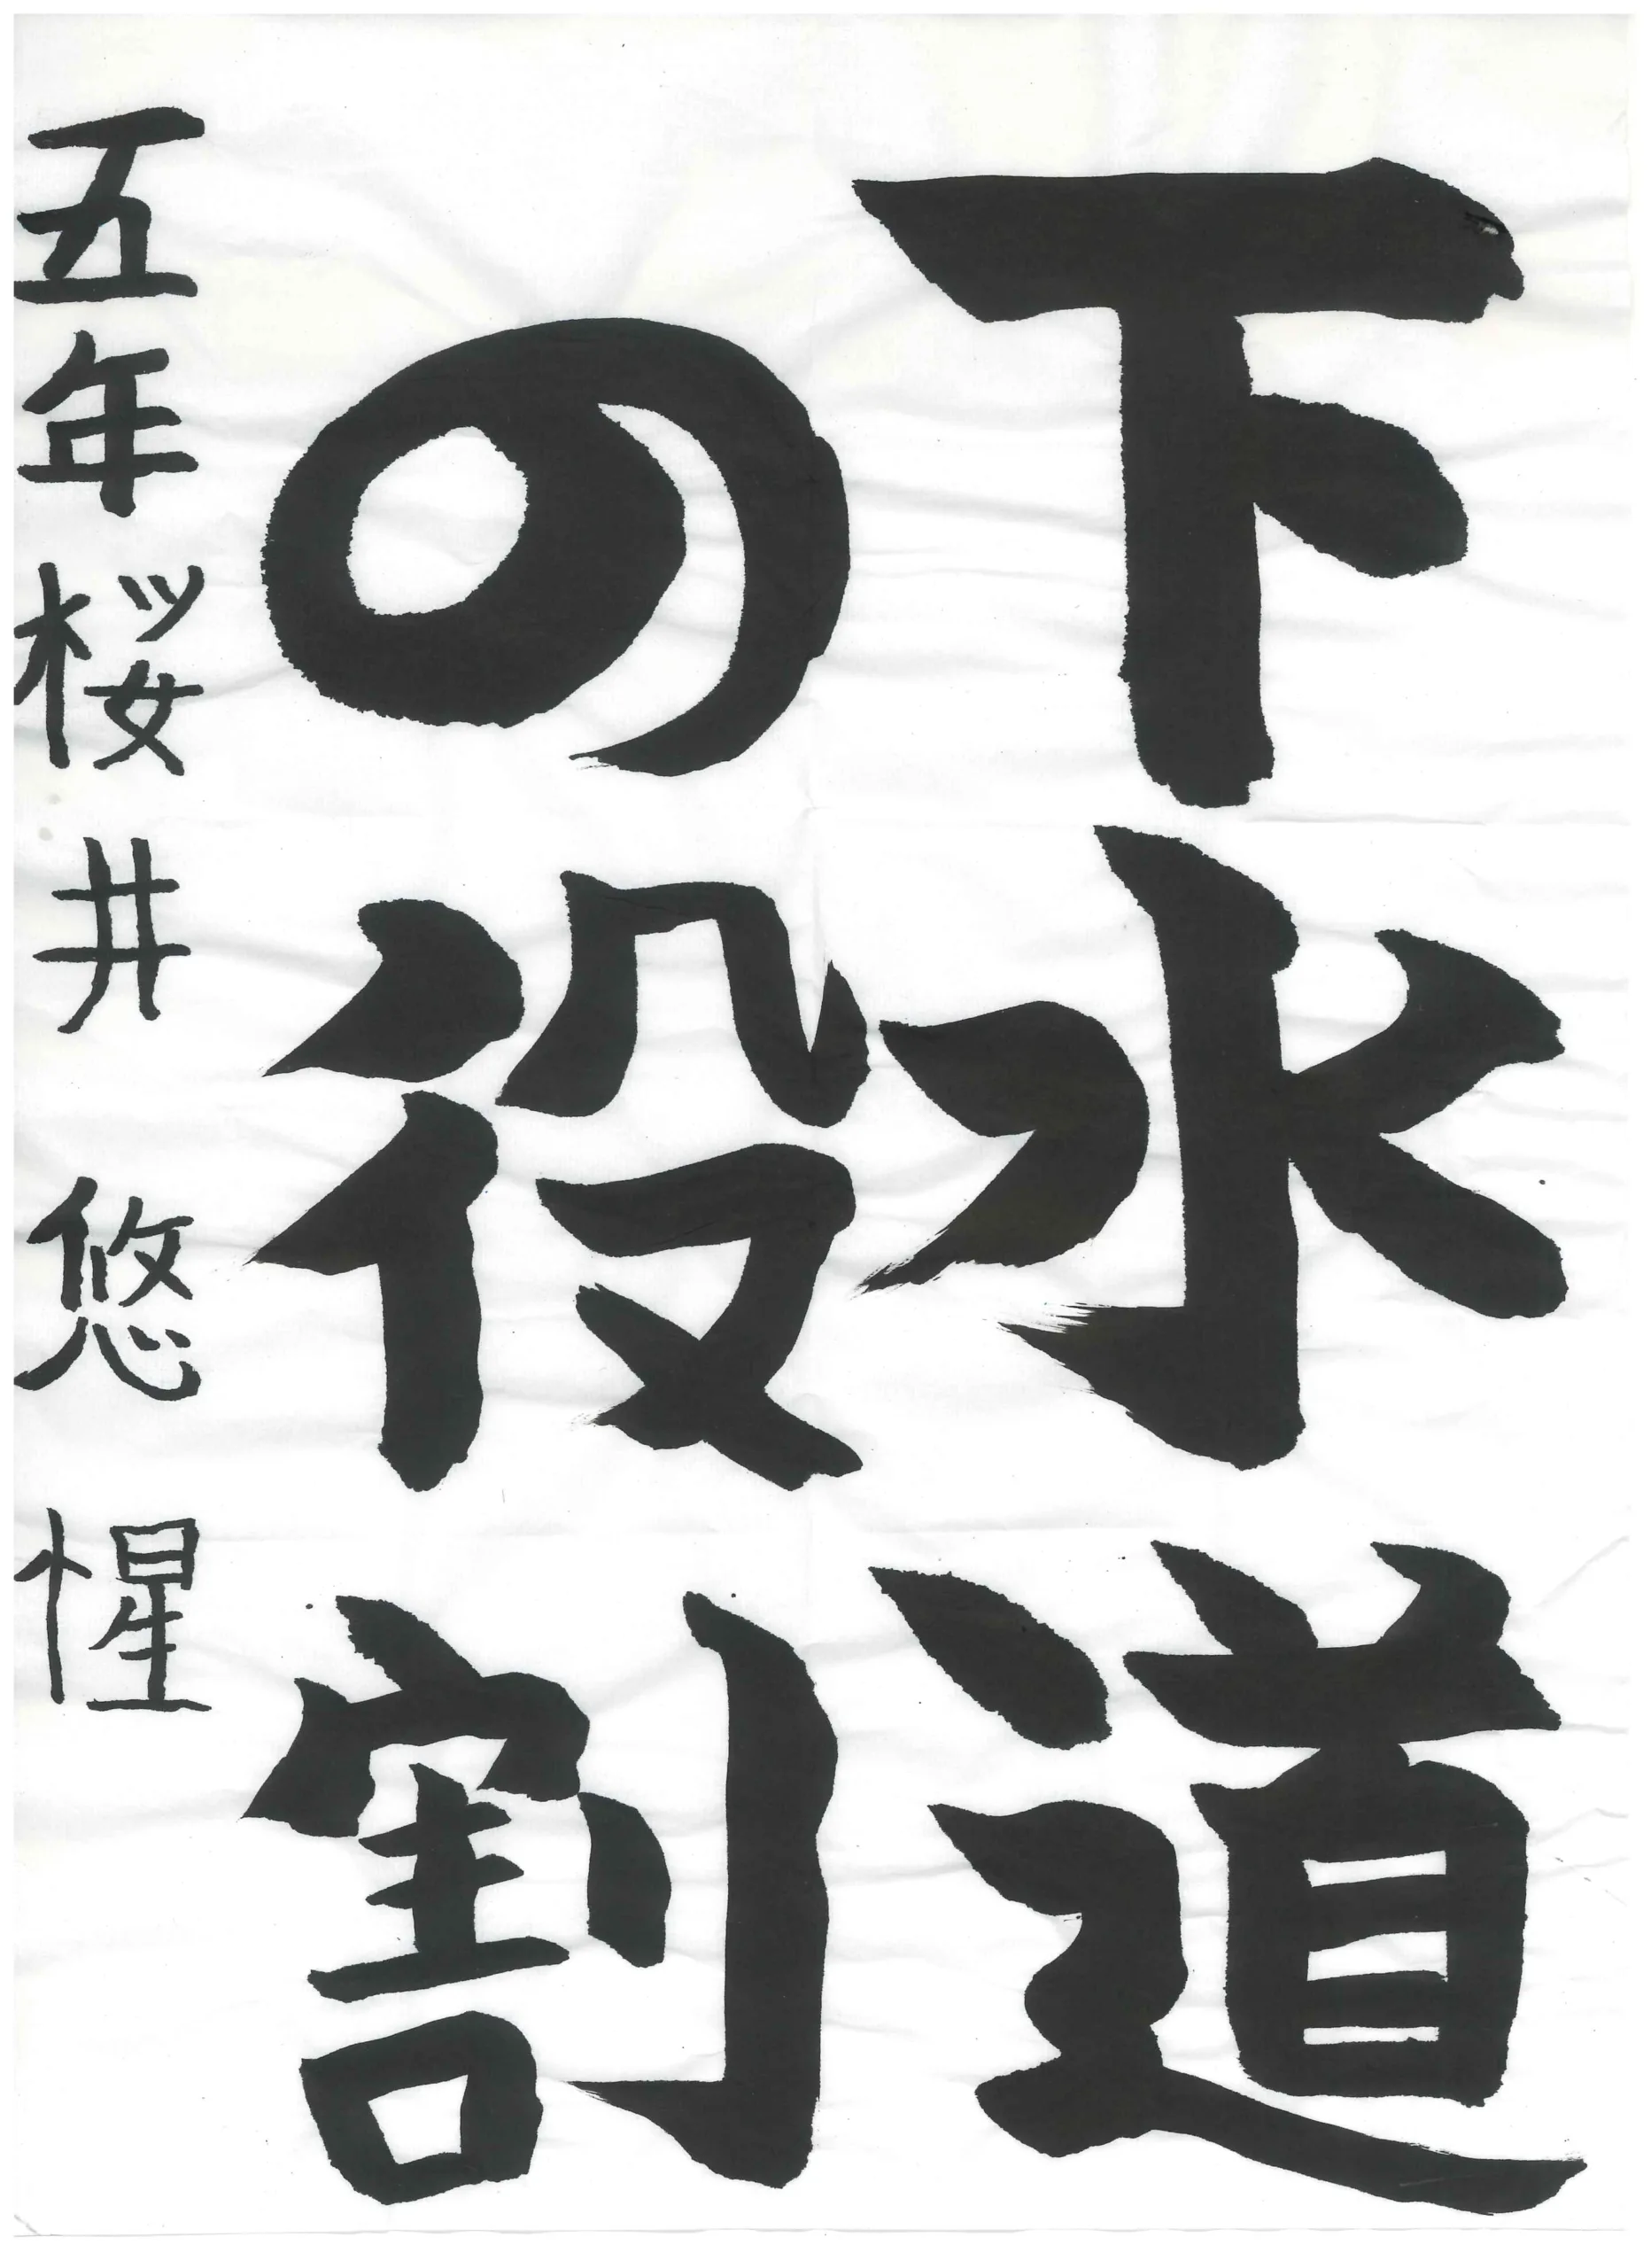 下水道
の役割
五年 桜井 悠惺